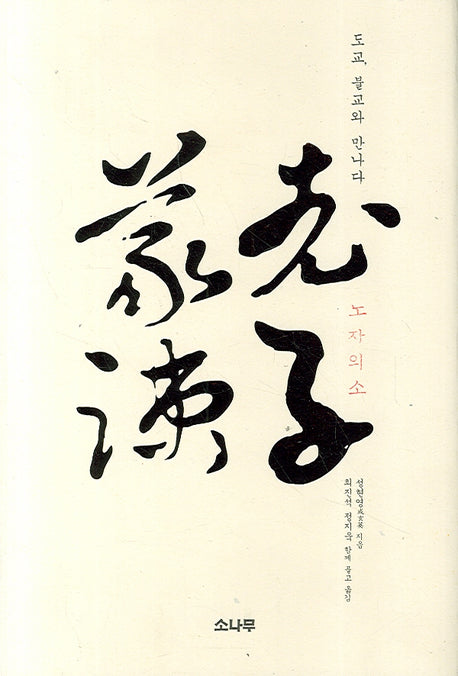 도교, 불교와 만나다
老子
義疎
노자의소
성현영成玄英 지음
최진석 정지욱 함께 풀고 옮김
소나무